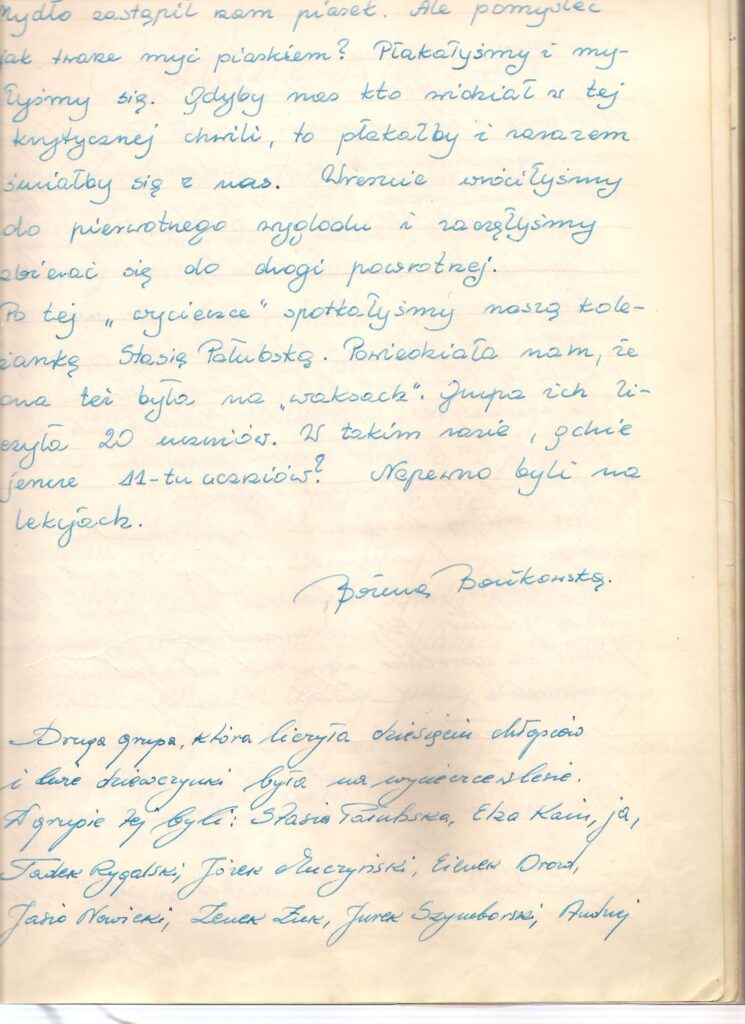 Mydło zastąpił nam piasek. Ale pomyśleć
jak twarz myć piaskiem? Płakałyśmy i my-
łyśmy się. Gdyby nas kto widział w tej
krytycznej chwili, to płakałby i zarazem
śmiałby się z nas. Wreszcie wróciłyśmy
do pierwotnego wyglądu i zaczęłyśmy
zbierać się do drogi powrotnej.
Po tej „wycieczce" spotkałyśmy naszą kole-
żankę Stasię Pałubską. Powiedziała nam, że
ona też była na „waksach". Grupa ich li-
czyła 20 uczniów. W takim razie, gdzie
jeszcze 11-tu uczniów? Napewno byli na
lekcjach.
Bożena Bańkowska.
Druga grupa, która liczyła dziesięciu chłopców
i dwie dziewczynki była na wycieczce w lesie.
W grupie tej byli: Stasia Pałubska, Elza Kain, ja,
Tadek Rygalski, Józek Muczyński, Gienek Drozd,
Jasio Nowicki, Zenek Żuk, Jurek Szymborski, Andrzej